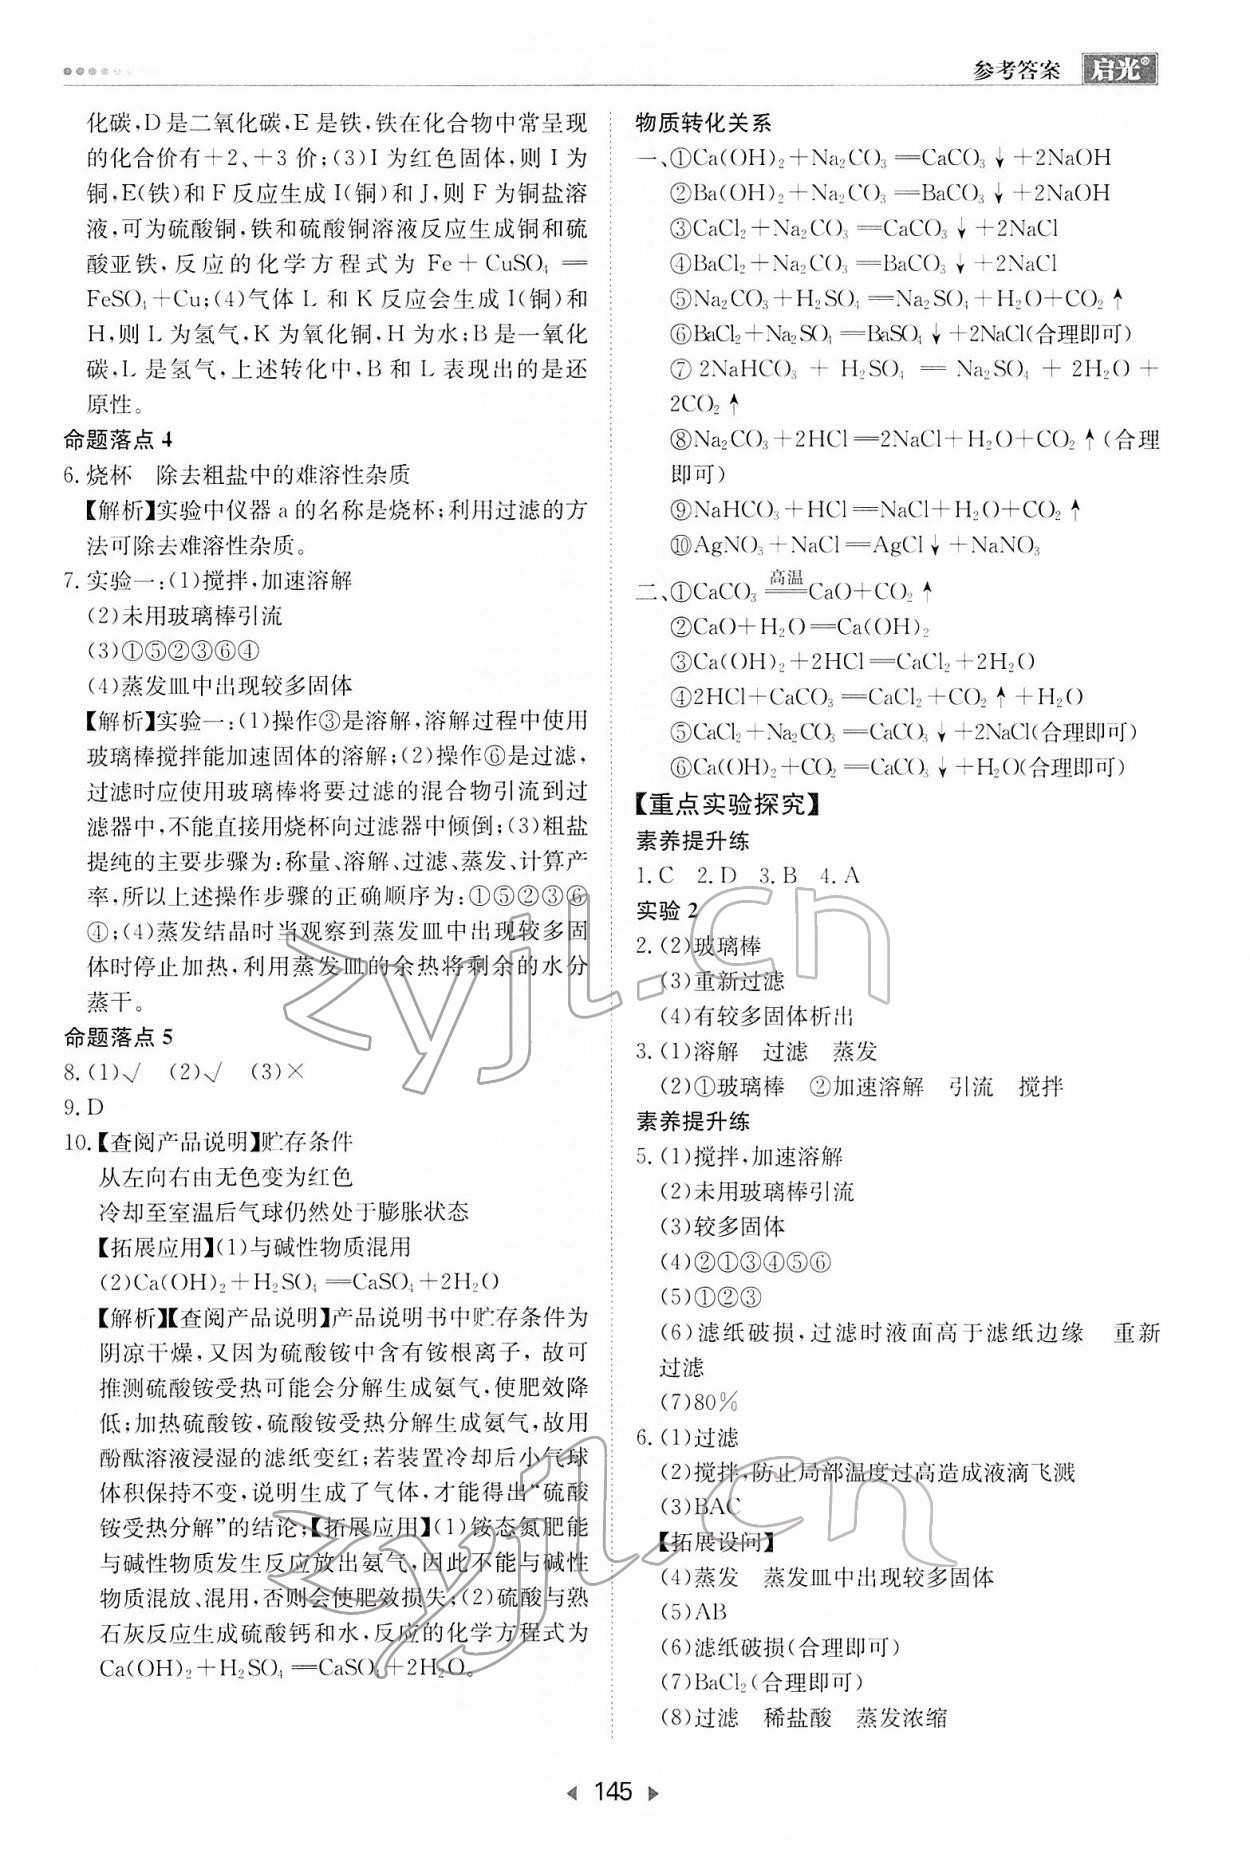 参考答案 启光®
化碳,D是二氧化碳,E是铁,铁在化合物中常呈现
的化合价有+2、+3价;(3)I为红色固体,则I为
铜,E(铁)和F反应生成I(铜)和J,则F为铜盐溶
液,可为硫酸铜,铁和硫酸铜溶液反应生成铜和硫
酸亚铁,反应的化学方程式为 Fe+CuSO₄══
FeSO₄+Cu;(4)气体L和K反应会生成I(铜)和
H,则L为氢气,K为氧化铜,H为水;B是一氧化
碳,L是氢气,上述转化中,B和L表现出的是还
原性。
命题落点4
6.烧杯 除去粗盐中的难溶性杂质
【解析】实验中仪器a的名称是烧杯;利用过滤的方
法可除去难溶性杂质。
7.实验一:(1)搅拌,加速溶解
(2)未用玻璃棒引流
(3)①⑤②③⑥④
(4)蒸发皿中出现较多固体
【解析】实验一:(1)操作③是溶解,溶解过程中使用
玻璃棒搅拌能加速固体的溶解;(2)操作⑥是过滤,
过滤时应使用玻璃棒将要过滤的混合物引流到过
滤器中,不能直接用烧杯向过滤器中倾倒;(3)粗盐
提纯的主要步骤为:称量、溶解、过滤、蒸发、计算产
率,所以上述操作步骤的正确顺序为:①⑤②③⑥
④;(4)蒸发结晶时当观察到蒸发皿中出现较多固
体时停止加热,利用蒸发皿的余热将剩余的水分
蒸干。
命题落点5
8.(1)√ (2)√ (3)×
9.D
10.【查阅产品说明】贮存条件
从左向右由无色变为红色
冷却至室温后气球仍然处于膨胀状态
【拓展应用】(1)与碱性物质混用
(2)Ca(OH)₂+H₂SO₄══CaSO₄+2H₂O
【解析】【查阅产品说明】产品说明书中贮存条件为
阴凉干燥,又因为硫酸铵中含有铵根离子,故可
推测硫酸铵受热可能会分解生成氨气,使肥效降
低;加热硫酸铵,硫酸铵受热分解生成氨气,故用
酚酞溶液浸湿的滤纸变红;若装置冷却后小气球
体积保持不变,说明生成了气体,才能得出“硫酸
铵受热分解”的结论;【拓展应用】(1)铵态氮肥能
与碱性物质发生反应放出氨气,因此不能与碱性
物质混放、混用,否则会使肥效损失;(2)硫酸与熟
石灰反应生成硫酸钙和水,反应的化学方程式为
Ca(OH)₂+H₂SO₄══CaSO₄+2H₂O。
物质转化关系
一、①Ca(OH)₂+Na₂CO₃══CaCO₃↓+2NaOH
②Ba(OH)₂+Na₂CO₃══BaCO₃↓+2NaOH
③CaCl₂+Na₂CO₃══CaCO₃↓+2NaCl
④BaCl₂+Na₂CO₃══BaCO₃↓+2NaCl
⑤Na₂CO₃+H₂SO₄══Na₂SO₄+H₂O+CO₂↑
⑥BaCl₂+Na₂SO₄══BaSO₄↓+2NaCl(合理即可)
⑦2NaHCO₃+H₂SO₄══Na₂SO₄+2H₂O+
2CO₂↑
⑧Na₂CO₃+2HCl══2NaCl+H₂O+CO₂↑(合理
即可)
⑨NaHCO₃+HCl══NaCl+H₂O+CO₂↑
⑩AgNO₃+NaCl══AgCl↓+NaNO₃
二、①CaCO₃ 高温══ CaO+CO₂↑
②CaO+H₂O══Ca(OH)₂
③Ca(OH)₂+2HCl══CaCl₂+2H₂O
④2HCl+CaCO₃══CaCl₂+CO₂↑+H₂O
⑤CaCl₂+Na₂CO₃══CaCO₃↓+2NaCl(合理即可)
⑥Ca(OH)₂+CO₂══CaCO₃↓+H₂O(合理即可)
【重点实验探究】
素养提升练
1.C 2.D 3.B 4.A
实验2
2.(2)玻璃棒
(3)重新过滤
(4)有较多固体析出
3.(1)溶解 过滤 蒸发
(2)①玻璃棒 ②加速溶解 引流 搅拌
素养提升练
5.(1)搅拌,加速溶解
(2)未用玻璃棒引流
(3)较多固体
(4)②①③④⑤⑥
(5)①②③
(6)滤纸破损,过滤时液面高于滤纸边缘 重新
过滤
(7)80%
6.(1)过滤
(2)搅拌,防止局部温度过高造成液滴飞溅
(3)BAC
【拓展设问】
(4)蒸发 蒸发皿中出现较多固体
(5)AB
(6)滤纸破损(合理即可)
(7)BaCl₂(合理即可)
(8)过滤 稀盐酸 蒸发浓缩
zyjl.cn
zyjl.cn
145